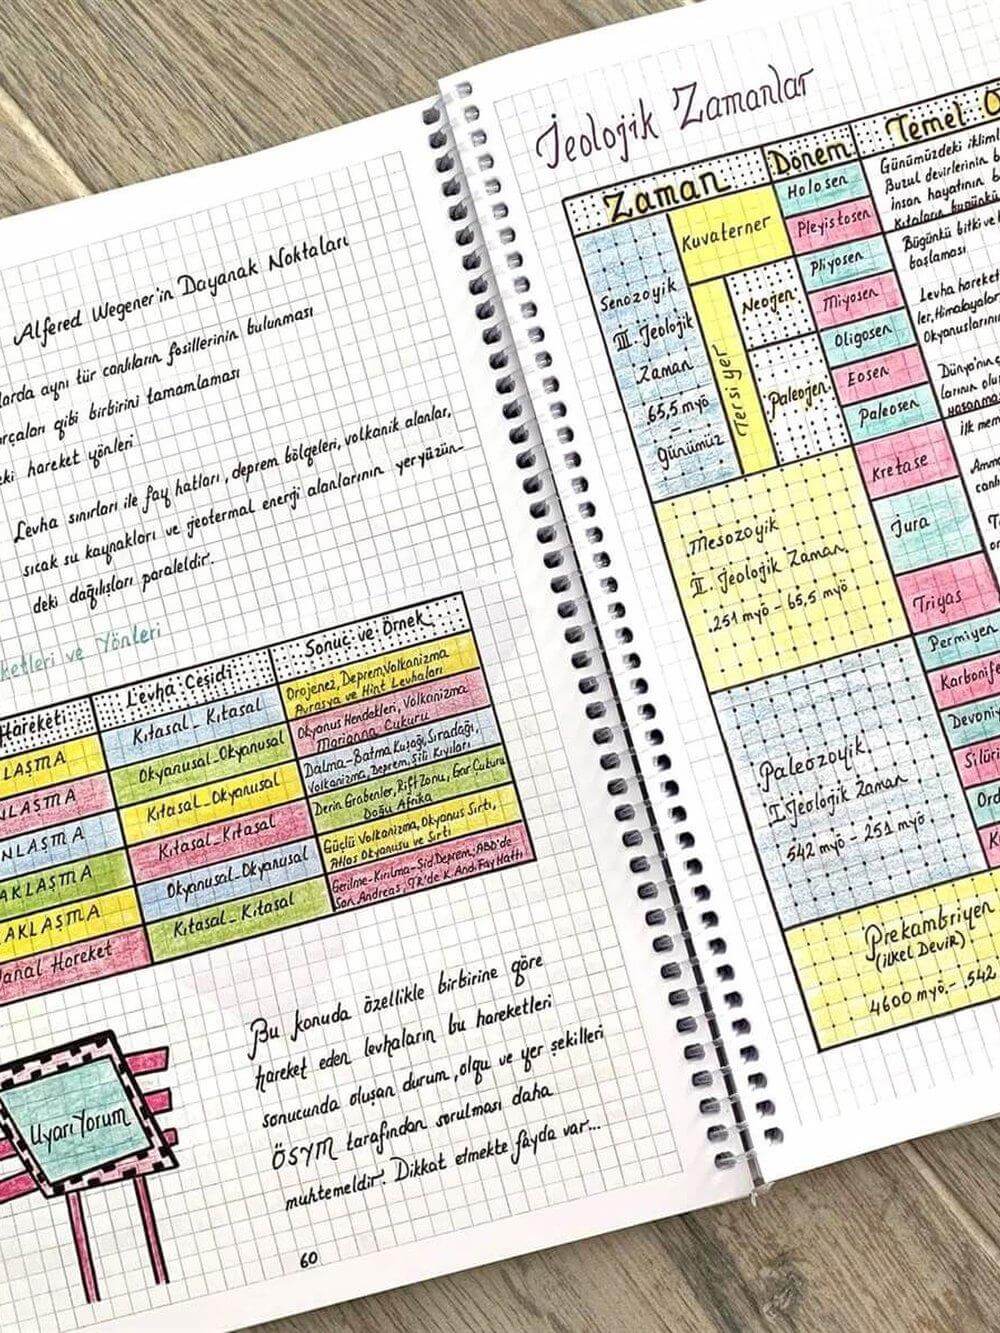 Alfered Wegener'in Dayanak Noktaları
aynı tür canlıların fosillerinin bulunması
gibi birbirini tamamlaması
hareket yönleri
Levha sınırları ile fay hatları, deprem bölgeleri, volkanik alanlar,
sıcak su kaynakları ve jeotermal enerji alanlarının yeryüzün-
deki dağılışları paraleldir.
ve Yönleri
Hareketi
Levha Çeşidi
Sonuç ve Örnek
Kıtasal_Kıtasal
Orojenez, Deprem, Volkanizma
Avrasya ve Hint Levhaları
Okyanusal_Okyanusal
Okyanus Hendekleri, Volkanizma
Marianna Çukuru
Kıtasal_Okyanusal
Dalma-Batma Kuşağı, Sıradağı,
Volkanizma, Deprem, Şili Kıyıları
Kıtasal_Kıtasal
Derin Grabenler, Rift Zonu, Gar Çukuru
Doğu Afrika
Okyanusal_Okyanusal
Güçlü Volkanizma, Okyanus Sırtı,
Atlas Okyanusu ve Sırtı
Hareket
Kıtasal_Kıtasal
Gerilme-Kırılma-Şid.Deprem, ABD'de
San Andreas, TR'de K.And.Fay Hattı
Uyarı Yorum
Bu konuda özellikle birbirine göre
hareket eden levhaların bu hareketleri
sonucunda oluşan durum, olgu ve yer şekilleri
ÖSYM tarafından sorulması daha
muhtemeldir. Dikkat etmekte fayda var...
60
Jeolojik Zamanlar
Zaman
Dönem
Temel
Senozoyik
III. Jeolojik
Zaman
65,5 myö
-
Günümüz
Kuvaterner
Tersiyer
Neojen
Paleojen
Holosen
Pleyistosen
Pliyosen
Miyosen
Oligosen
Eosen
Paleosen
Günümüzdeki iklim
Buzul devirlerinin
insan hayatının
Kıtaların bugünkü
Bügünkü bitki ve
başlaması.
Levha hareket
ler, Himalayalar
Okyanuslarını
Dünya'nın
larının
Mesozoyik
II. Jeolojik Zaman
251 myö - 65,5 myö
Kretase
Jura
Triyas
Paleozoyik
I. Jeolojik Zaman
542 myö - 251 myö
Permiyen
Prekambriyen
(ilkel Devir)
4600 myö - 542